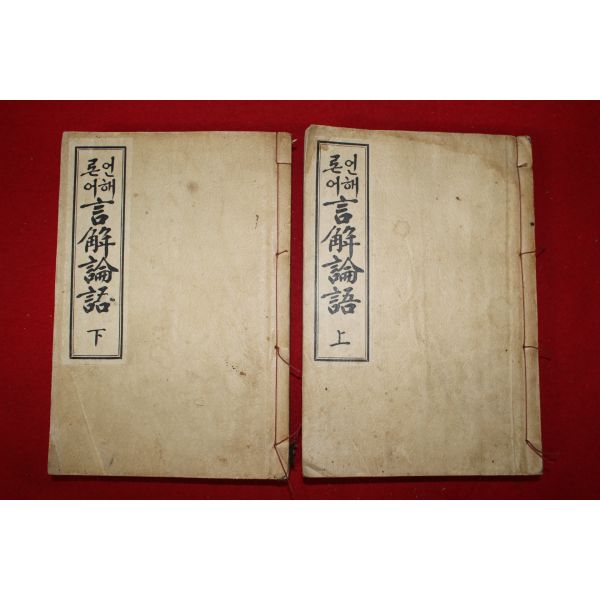 언해
론어
言解論語
上
언해
론어
言解論話
下